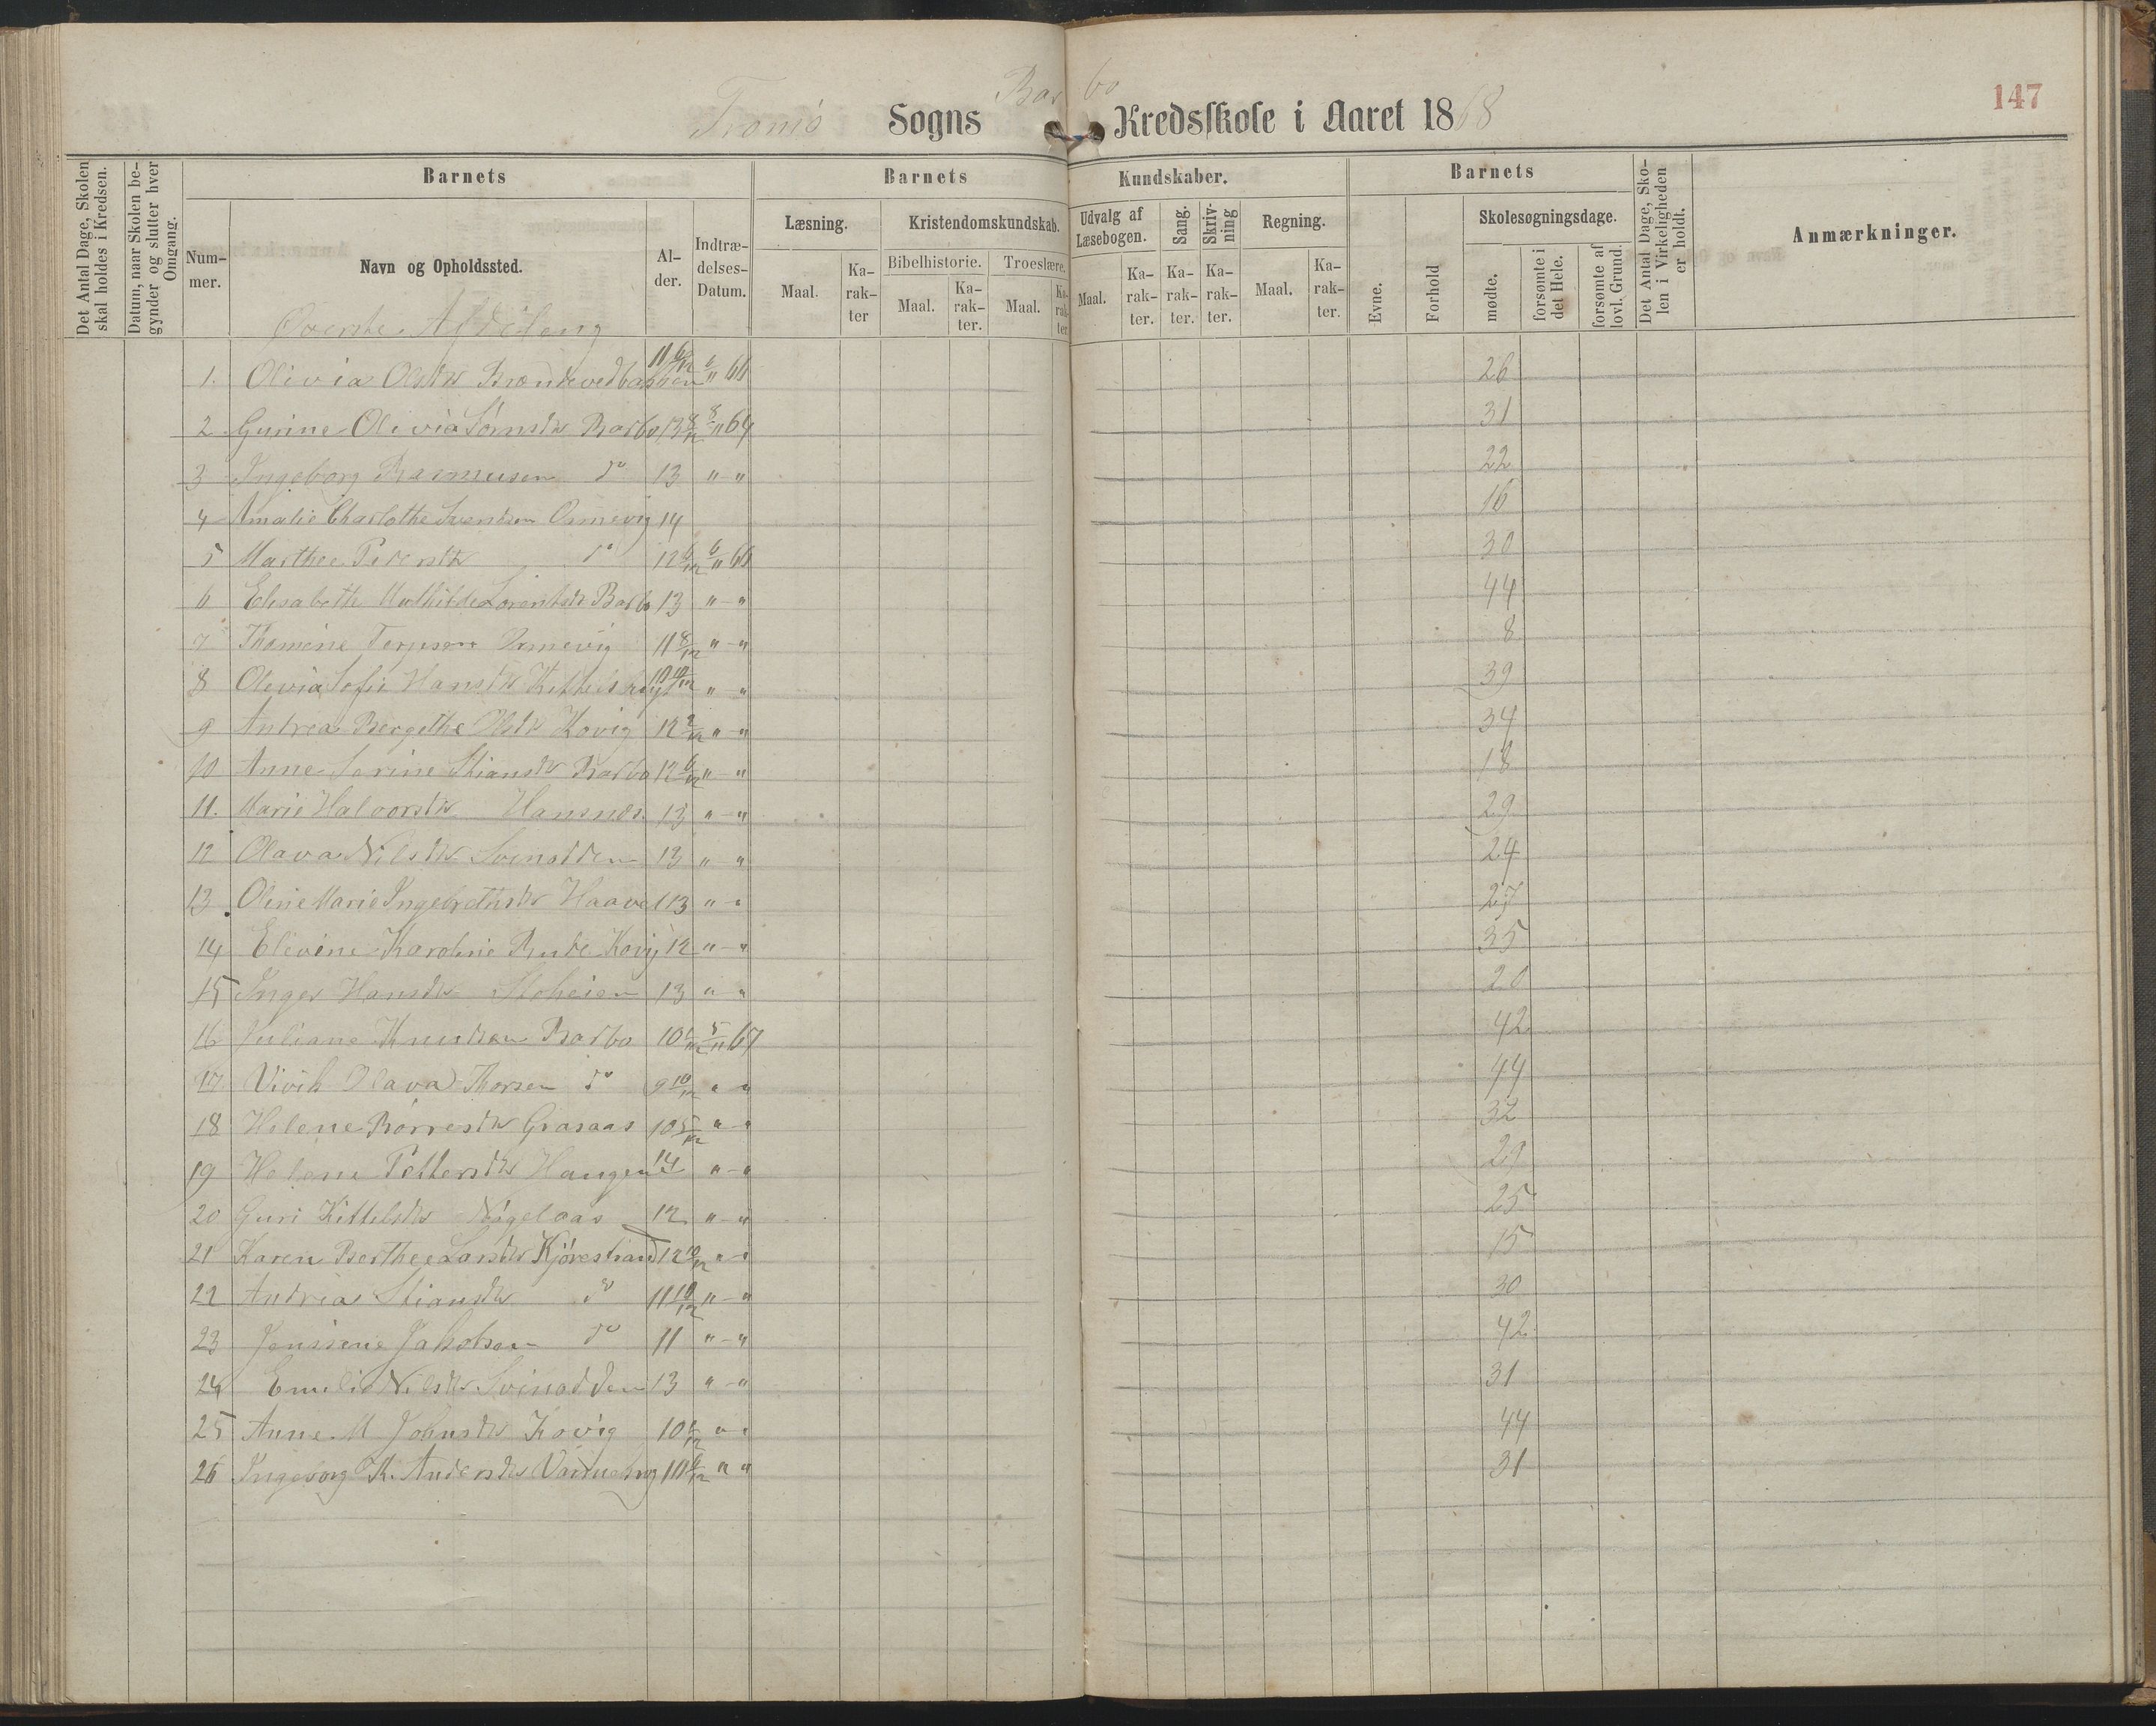 147
Tromö Sogns Barbo Kredsskole i Aaret 1868
Det Antal Dage, Skolen skal holdes i Kredsen.
Datum, naar Skolen begynder og slutter hver Omgang.
Barnets
Nummer.
Navn og Opholdssted.
Alder.
Indtrædelses-Datum.
Barnets Kundskaber.
Læsning.
Maal.
Karakter
Kristendomskundskab.
Bibelhistorie.
Maal.
Karakter.
Troeslære.
Maal.
Karakter
Udvalg af Læsebogen.
Maal.
Karakter.
Sang.
Karakter.
Skrivning
Karakter.
Regning.
Maal.
Karakter.
Barnets
Evne.
Forhold
Skolesøgningsdage.
mødte.
forsømte i det Hele.
forsømte af lovl. Grund.
Det Antal Dage, Skolen i Virkeligheden er holdt.
Anmærkninger.
Överste Afdeling
1. Olivia Olsdtr 11 6/12 6/11 66 26
2 Gurine Olivia Barbo 13 8/12 8/11 64 31
3 Ingeborg Rasmusen do 13 " - " 22
4 Amalie Charlothe Svendsen Ormevig 14 16
5 Marthee Pedersdtr do 12 6/12 6/11 66 30
6 Elisabeth Mathilde Lorentsdtr Barbo 13 " - " 44
7 Thomine Terjesen Ormevig 11 8/12 " - " 8
8 Olevia Sofie Hansdtr 10 10/12 " - " 39
9 Andrea Bergithe Olsdtr Kovig 12 " - " 34
10 Anne Sorine Stiansdtr Barbo 12 6/12 " - " 18
11. Marie Halvorsdtr 13 " - " 29
12 Olava Nilsdtr Svinodden 13 " - " 24
13 Oline Marie Ingebrethsdtr Haave 13 " - " 27
14 Elevine Karoline Rude Kovig 12 " - " 35
15 Inger Hansdtr Stoheien 13 " - " 20
16 Juliane Knudsen Barbo 10 5/11 67 42
17 Olava Thorsen do 9 10/12 " " 44
18 Helene Börresdtr Graaas 10 5/12 " - " 32
19 Helene Pettersdtr Haugen 14 " - " 29
20 Guri Kittelsdtr 12 " - " 25
21 Karen Berthee Larsdtr Kjörestrand 12 10/12 " - " 15
22 Andrea Stiansdtr do 11 10/12 " - " 30
23 Jenssine Jakobsen do 11 " - " 42
24 Emilie Nilsdtr Svinodden 13 " - " 31
25 Anne M Johnsdtr Kovig 10 " - " 44
26 Ingeborg K. Andersdtr 11 " " 31